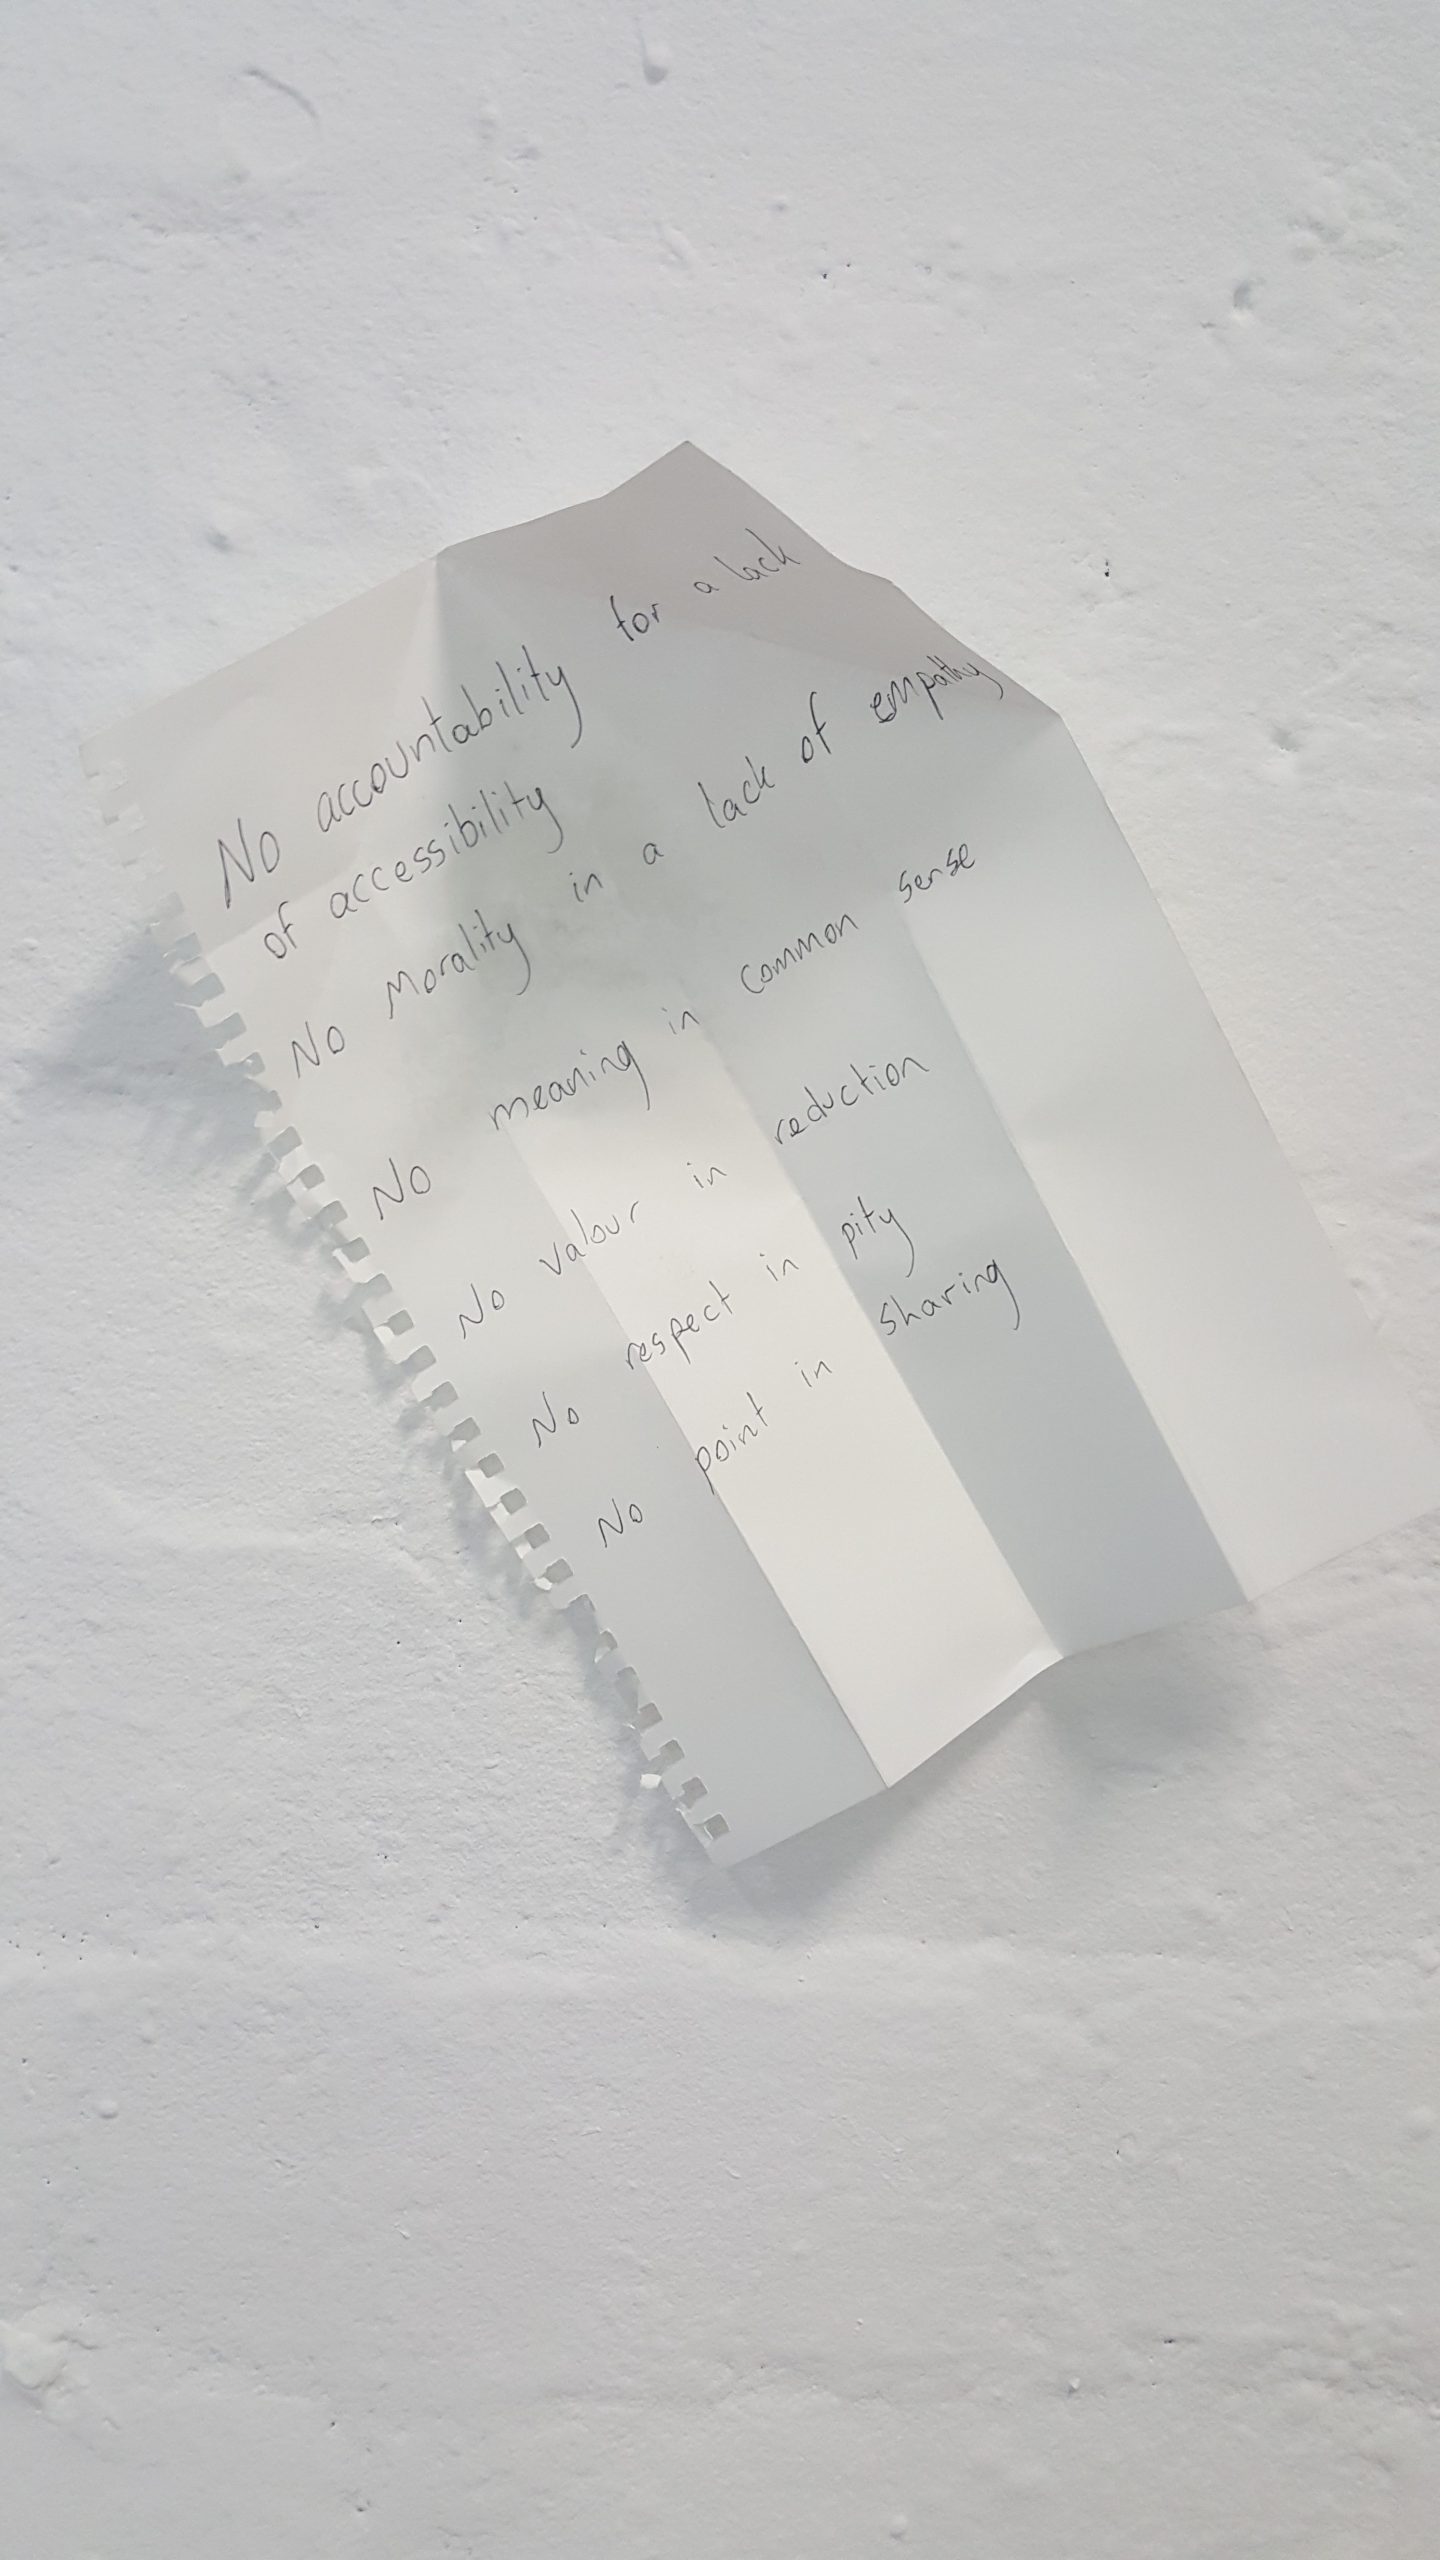 No accountability for a lack
of accessibility
No Morality in a lack of empathy
No meaning in common sense
No valour in reduction
No respect in pity
No point in sharing